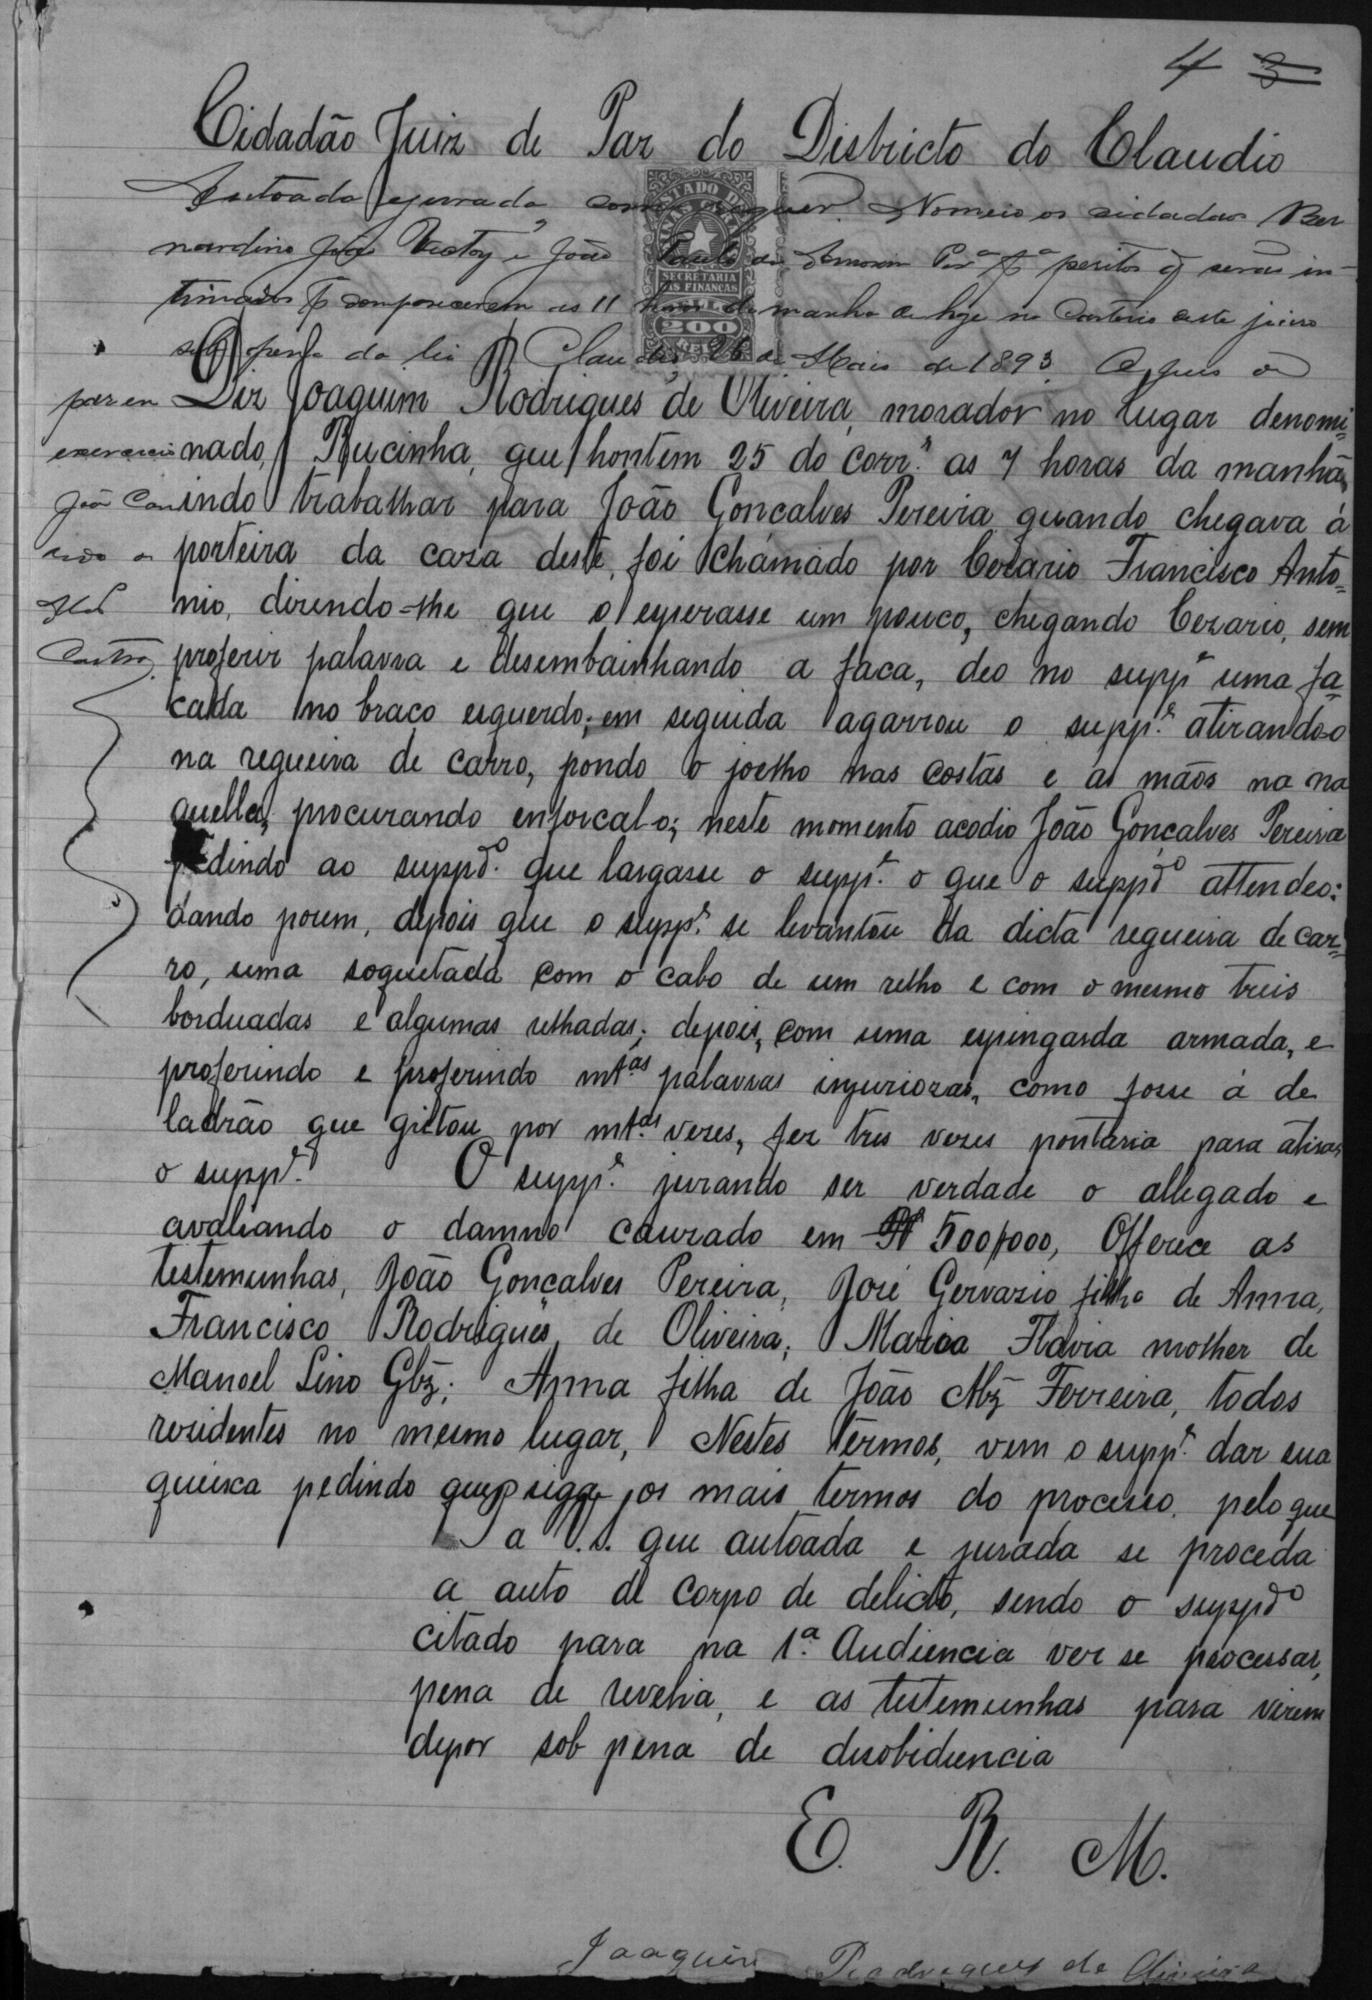 4 3
Cidadão Juiz de Paz do Districto do Claudio
Autoada e jurada como requer. Nomeio os cidadãos Ber
nardino José Victoy e João Paulo de Amorim Per.ª p.ª peritos q̃ serão in-
timados p.ª comparecerem as 11 horas da manhã de hoje no Cartorio deste juizo
sob pena da lei Claudio, 26 de Maio de 1893. O Juis de
paz em
exercicio
João Can
dido
Castro
ESTADO DE
MINAS
SECRETARIA
DAS FINANÇAS
SELLO
200
REIS
Diz Joaquim Rodrigues de Oliveira, morador no lugar denomi-
nado, Rucinha, que hontem 25 do corr.e as 7 horas da manhã,
indo trabalhar para João Goncalves Pereira quando chegava á
porteira da caza deste, foi chamado por Cezario Francisco Anto-
nio, dizendo-lhe que o esperasse um pouco, chegando Cezario, sem
proferir palavra e desembainhando a faca, deo no supp.e uma fa-
cada no braço esquerdo; em seguida agarrou o supp.e atirando-o
na regueira de carro, pondo o joelho nas costas e as mãos na na
quella, procurando enforcal-o; neste momento acodio João Gonçalves Pereira
pedindo ao suppdo. que largasse o supp.e o que o suppdo attendeo:
dando porem, depois que o supp.e se levantou da dicta regueira de car-
ro, uma soquetada com o cabo de um relho e com o mesmo treis
borduadas e algumas relhadas; depois, com uma espingarda armada, e
proferindo e proferindo mtas palavras injuriozas, como fosse á de
ladrão que gictou por mt.as vezes, fez tres vezes pontaria para atirar
o supp.e O supp.e jurando ser verdade o allegado e
avaliando o damno cauzado em R 500$000, Offerece as
testemunhas, João Gonçalves Pereira, José Gervazio filho de Anna,
Francisco Rodrigues de Oliveira; Maria Flavia molher de
Manoel Lino Glz; Anna filha de João Alz Ferreira, todos
rezidentes no mesmo lugar, Nestes termos, vem o supp.e dar sua
queixa pedindo que siga os mais termos do processo. pelo que
P a V.S. que autoada e jurada se proceda
a auto de corpo de delicto, sendo o suppdo
citado para na 1.ª Audiencia ver se processar,
pena de revelia, e as testemunhas para virem
depor sob pena de desobidiencia
E. R. M.
Joaquim Rodrigues de Oliveira